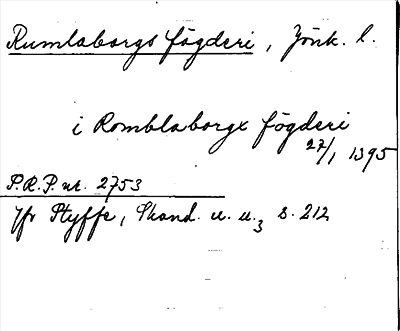 Rumlaborgs fögderi, Jönk. l.
i Romblaborgx fögderi
27/1 1395
P.R.P. nr. 2753
Jfr Styffe, Skand. u. u.3 s. 212